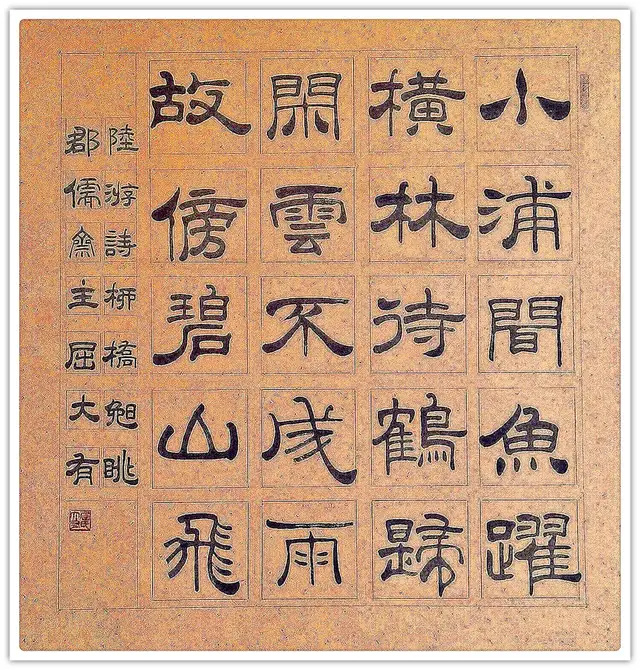 小浦間魚躍
橫林待鶴歸
閑雲不成雨
故傍碧山飛
陸游詩柳橋晚眺
郡儒齋主屈大有